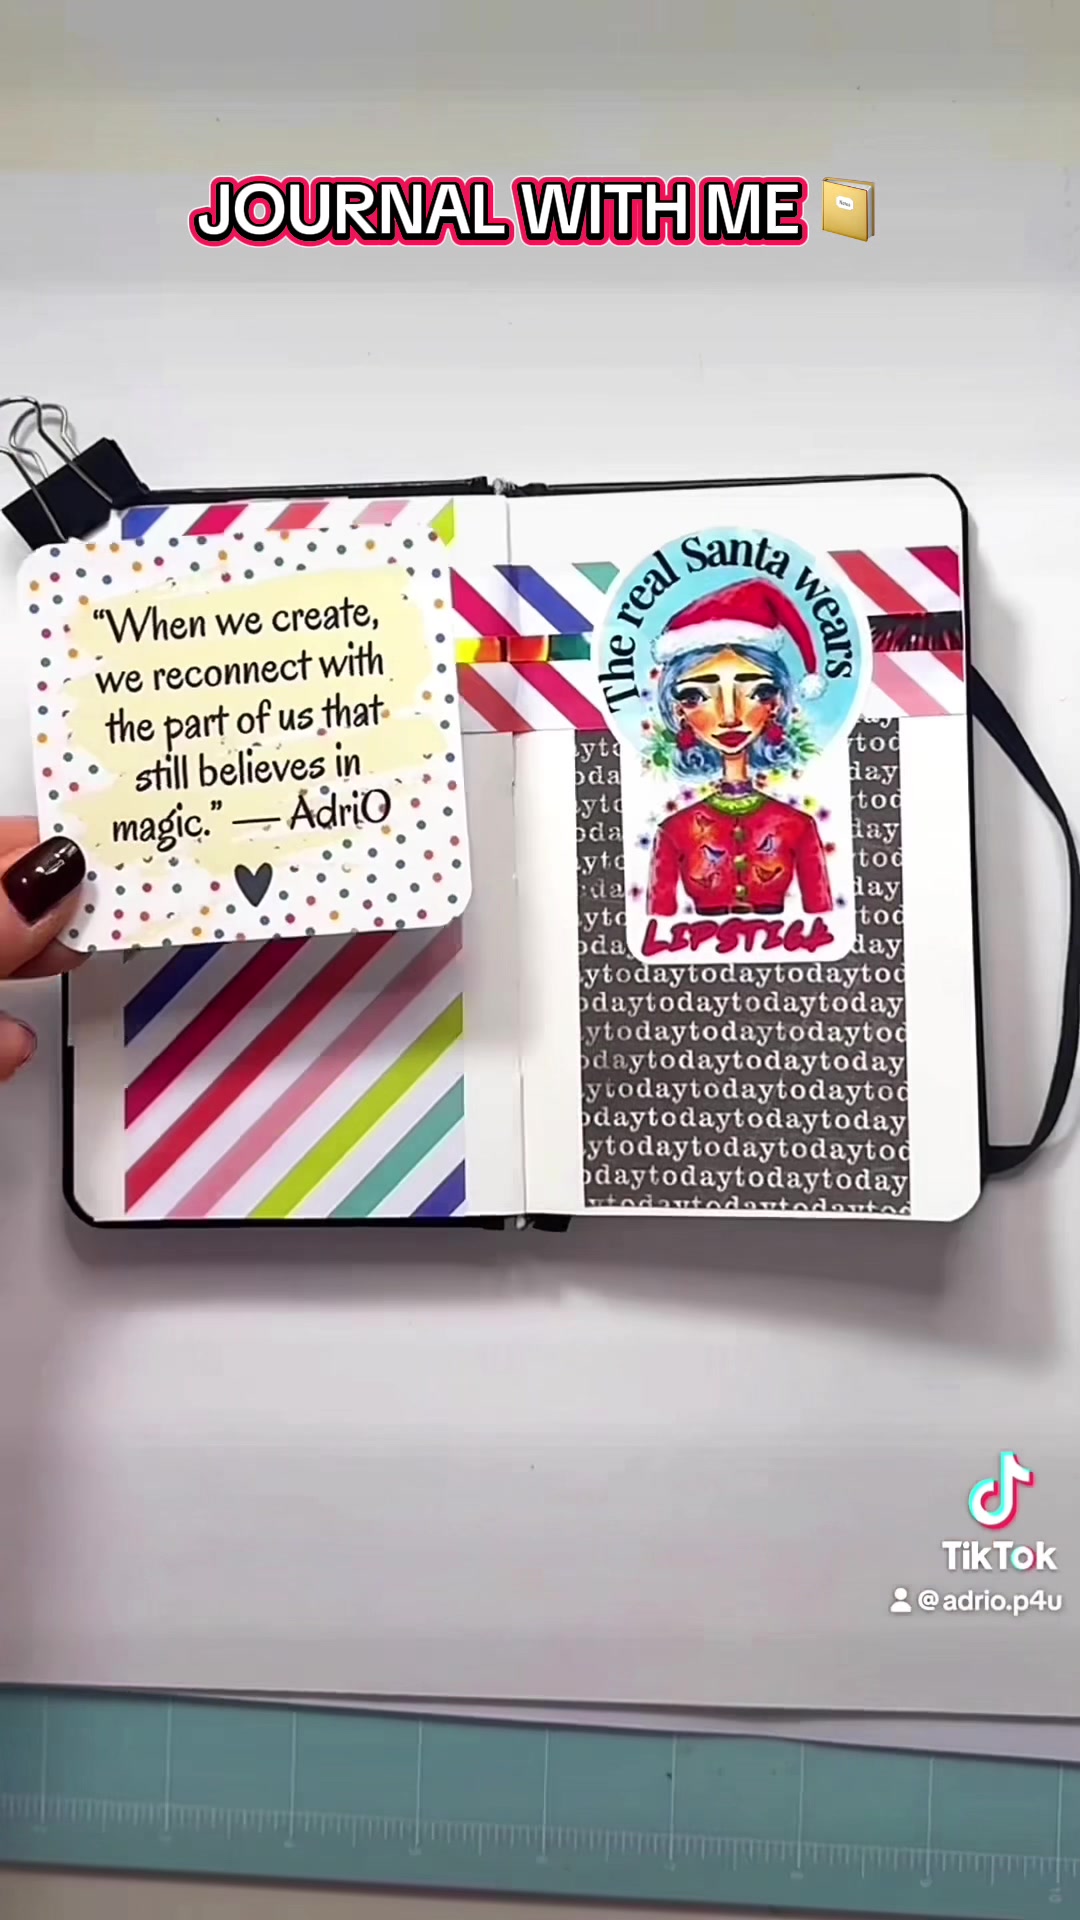 JOURNAL WITH ME
“When we create,
we reconnect with
the part of us that
still believes in
magic.” — AdriO
The real Santa wears
LIPSTICK
ytodaytodaytodaytod
odaytodaytodaytoday
ytodaytodaytodaytod
odaytodaytodaytoday
ytodaytodaytodaytod
odaytodaytodaytoday
ytodaytodaytodaytod
odaytodaytodaytoday
TikTok
@adrio.p4u